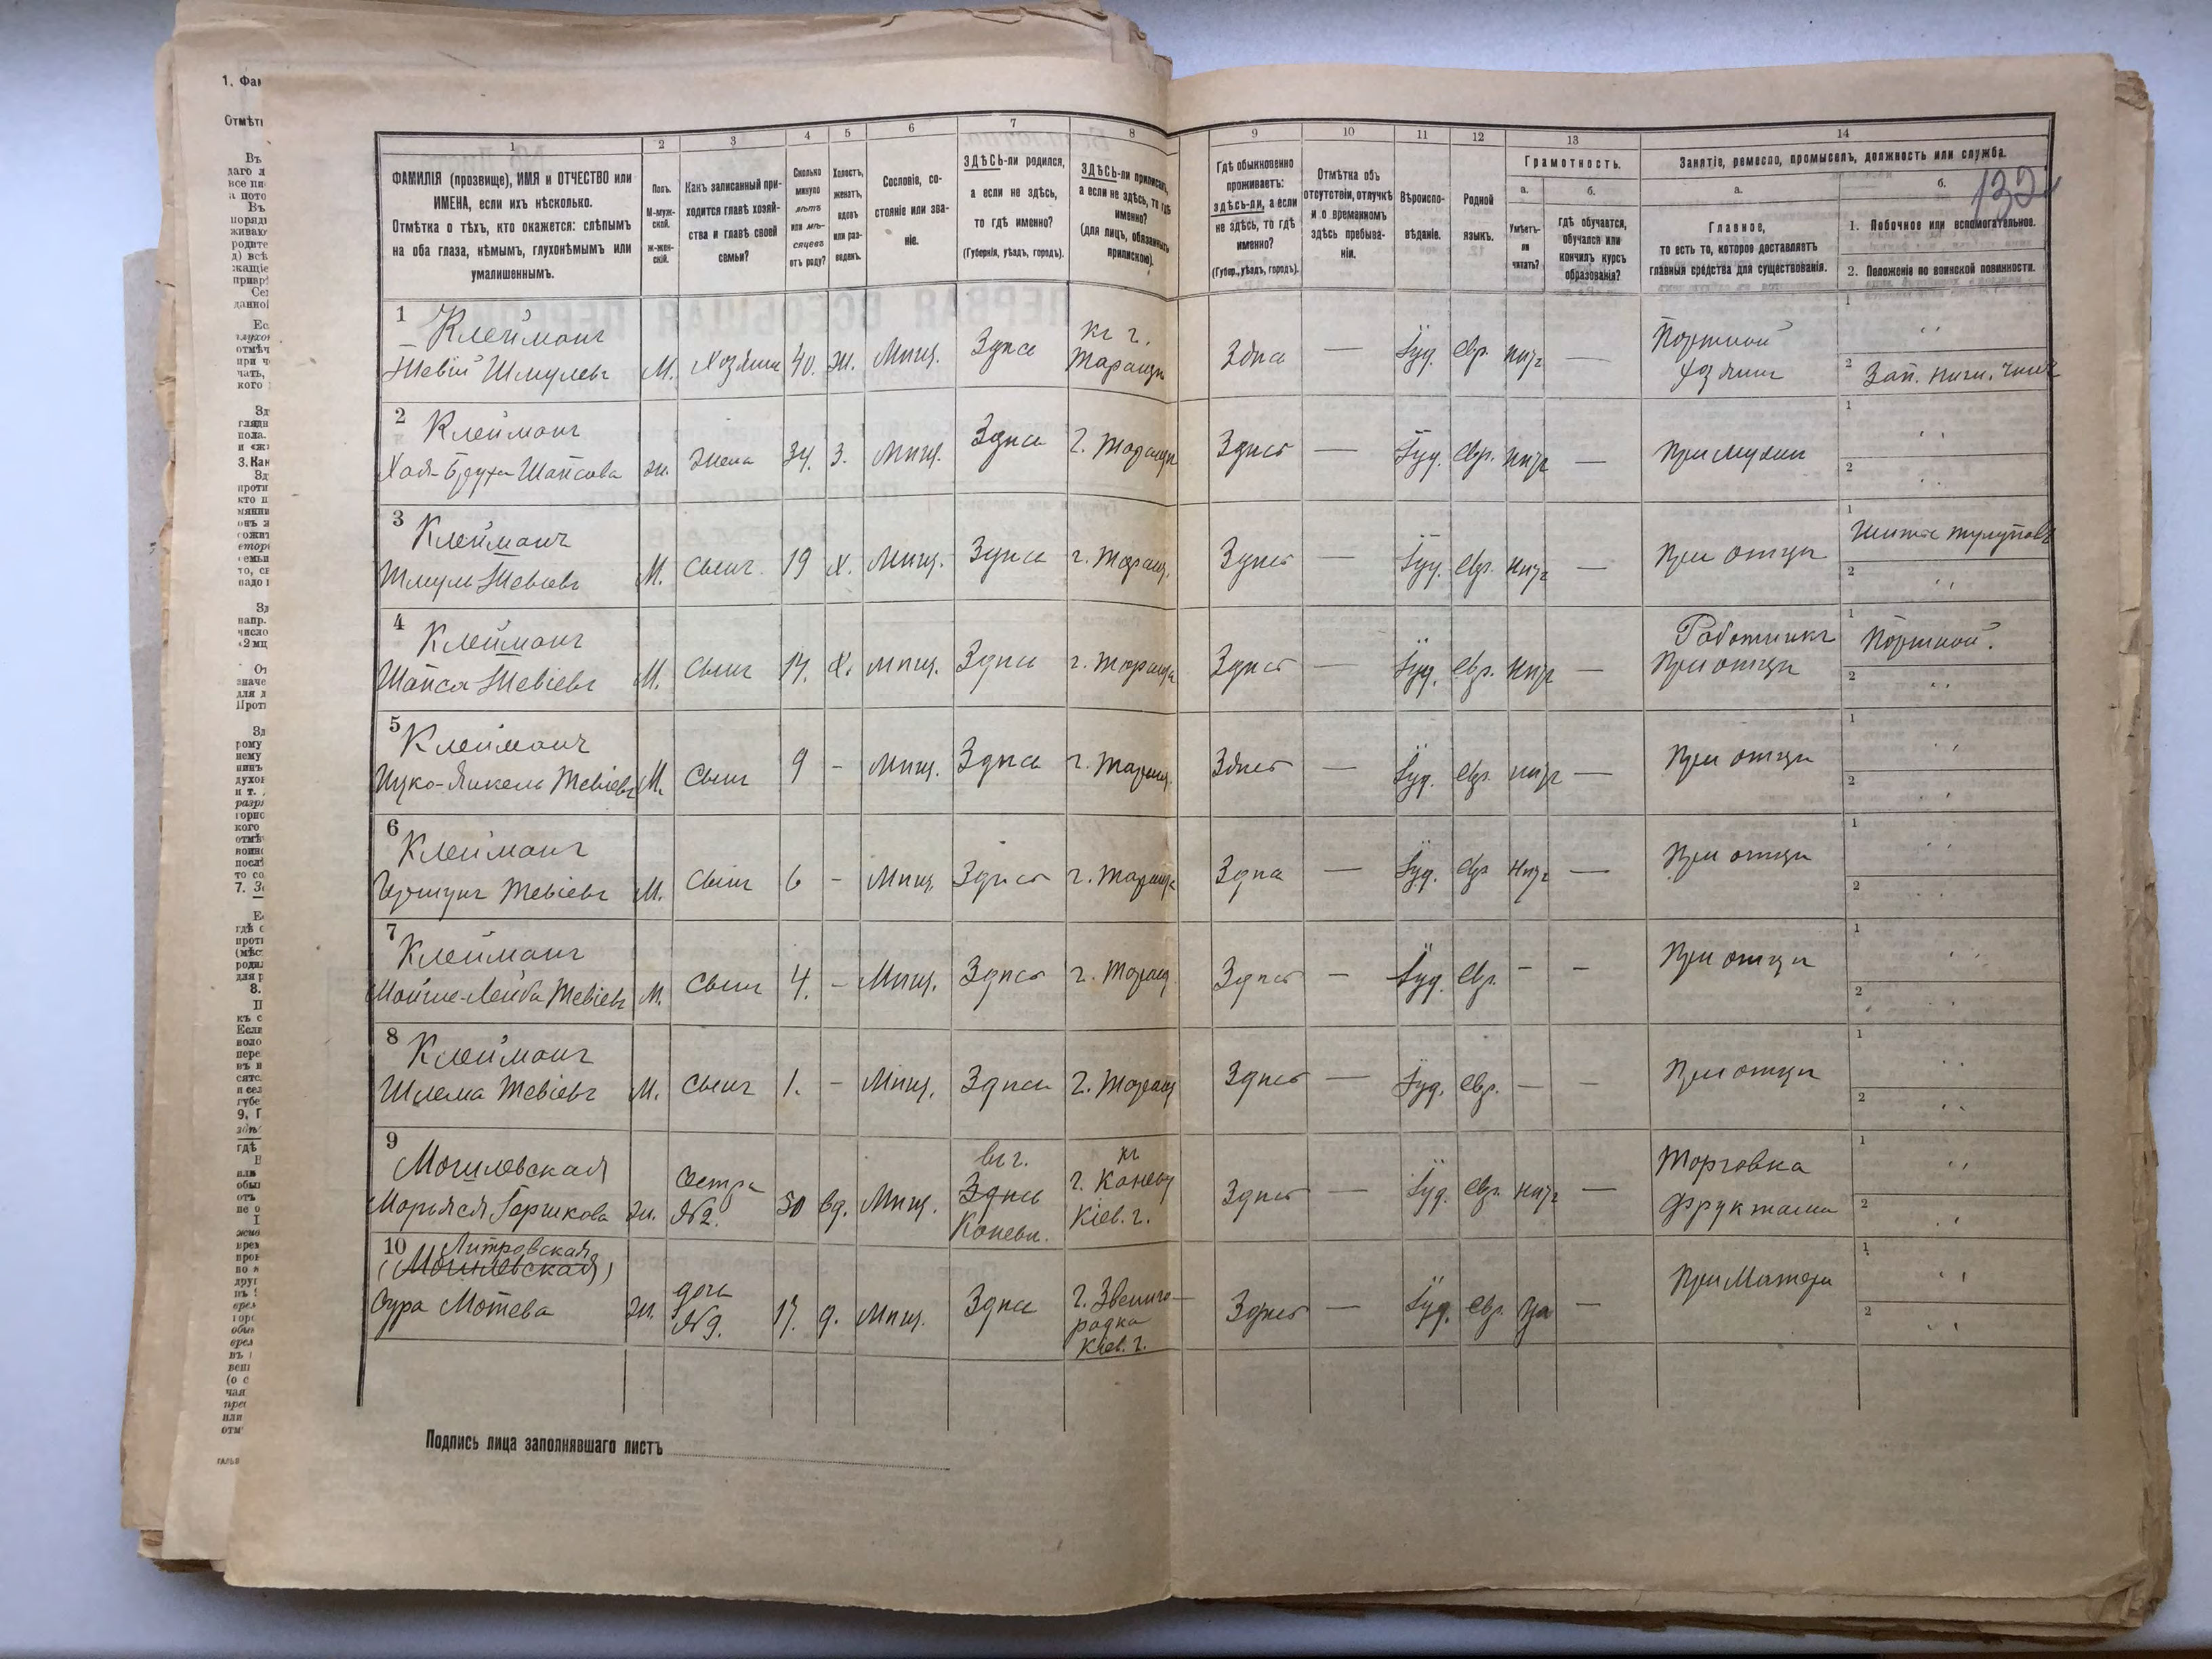 1
ФАМИЛІЯ (прозвище), ИМЯ и ОТЧЕСТВО или
ИМЕНА, если ихъ нѣсколько.
Отмѣтка о тѣхъ, кто окажется: слѣпымъ
на оба глаза, нѣмымъ, глухонѣмымъ или
умалишеннымъ.
2
Полъ.
М-муж-
ской.
Ж-жен-
скій.
3
Какъ записанный при-
ходится главѣ хозяй-
ства и главѣ своей
семьи?
4
Сколько
минуло
лѣтъ
или мѣ-
сяцевъ
отъ роду?
5
Холостъ,
женатъ,
вдовъ
или раз-
веденъ.
6
Сословіе, со-
стояніе или зва-
ніе.
7
ЗДѢСЬ-ли родился,
а если не здѣсь,
то гдѣ именно?
(Губернія, уѣздъ, городъ).
8
ЗДѢСЬ-ли приписанъ,
а если не здѣсь, то гдѣ
именно?
(для лицъ, обязанныхъ
припискою).
9
Гдѣ обыкновенно
проживаетъ:
здѣсь-ли, а если
не здѣсь, то гдѣ
именно?
(Губер., уѣздъ, городъ).
10
Отмѣтка объ
отсутствіи, отлучкѣ
и о временномъ
здѣсь пребыва-
ніи.
11
Вѣроиспо-
вѣданіе.
12
Родной
языкъ.
13
Грамотность.
а.
Умѣетъ-
ли
читать?
б.
Гдѣ обучается,
обучался или
кончилъ курсъ
образованія?
14
Занятіе, ремесло, промыселъ, должность или служба.
а.
Главное,
то есть то, которое доставляетъ
главныя средства для существованія.
б.
132
1. Побочное или вспомогательное.
2. Положеніе по воинской повинности.
1
Клейманъ
Тевій Шмулевъ
М. Хозяинъ 40. Ж. Мѣщ. Здѣсь
къ г.
Таращи
Здѣсь — Іуд. Евр. нѣтъ —
Портной
хозяинъ
1
2
2
Клейманъ
Хая-Бруха Шапсова
Ж. Жена 34. З. Мѣщ. Здѣсь г. Таращи
Здѣсь — Іуд. Евр. нѣтъ — При мужѣ
1
2
3
Клейманъ
Шмуль Тевіевъ
М. Сынъ 19 Х. Мѣщ. Здѣсь г. Таращ.
Здѣсь — Іуд. Евр. нѣтъ — При отцѣ
1
2
4
Клейманъ
Шапса Тевіевъ
М. Сынъ 14. Х. Мѣщ. Здѣсь г. Тараща
Здѣсь — Іуд. Евр. нѣтъ —
Работникъ
При отцѣ
1 Портной.
2
5
Клейманъ
Ицко-Янкель Тевіевъ
М. Сынъ 9 - Мѣщ. Здѣсь г. Таращ.
Здѣсь — Іуд. Евр. нѣтъ — При отцѣ
1
2
6
Клейманъ
Тевіевъ
М. Сынъ 6 - Мѣщ. Здѣсь г. Тараща
Здѣсь — Іуд. Евр. нѣтъ — При отцѣ
1
2
7
Клейманъ
Мойше-Лейба Тевіевъ
М. Сынъ 4. - Мѣщ. Здѣсь г. Таращ.
Здѣсь — Іуд. Евр. - - При отцѣ
1
2
8
Клейманъ
Шлема Тевіевъ
М. Сынъ 1. - Мѣщ. Здѣсь г. Таращ
Здѣсь — Іуд. Евр. — — При отцѣ
1
2
9
Могилевская
Марьяся Гершкова
Ж. Сестра
№2.
50 вд. Мѣщ.
въ г.
Здѣсь
Каневѣ.
къ
г. Каневу
Кіев. г.
Здѣсь — Іуд. Евр. нѣтъ —
Торговка
фруктами
1
2
10
(Могилевская)
Сура Мотева
Ж. дочь
№9.
17. д. Мѣщ. Здѣсь
г. Звениго-
родка
Кіев. г.
Здѣсь — Іуд. Евр. да — При Матери
1
2
Подпись лица заполнявшаго листъ